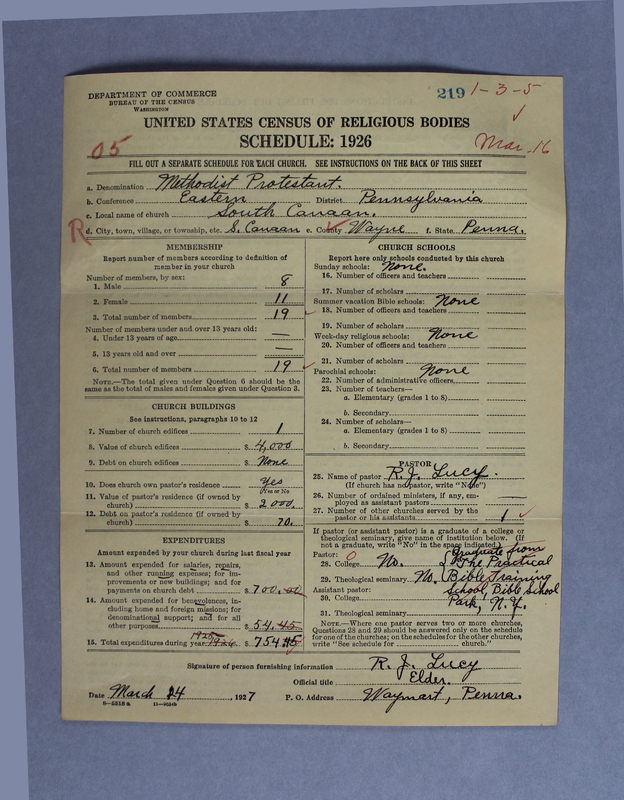 DEPARTMENT OF COMMERCE
BUREAU OF THE CENSUS
WASHINGTON
219 1-3-5
UNITED STATES CENSUS OF RELIGIOUS BODIES
SCHEDULE: 1926
05
Mar. 16
FILL OUT A SEPARATE SCHEDULE FOR EACH CHURCH. SEE INSTRUCTIONS ON THE BACK OF THIS SHEET
a. Denomination Methodist Protestant.
b. Conference Eastern District Pennsylvania
c. Local name of church South Canaan.
R d. City, town, village, or township, etc. S. Canaan e. County Wayne f. State Penna.
MEMBERSHIP
Report number of members according to definition of
member in your church
Number of members, by sex:
1. Male 8
2. Female 11
3. Total number of members 19
Number of members under and over 13 years old:
4. Under 13 years of age —
5. 13 years old and over —
6. Total number of members 19
NOTE.—The total given under Question 6 should be the
same as the total of males and females given under Question 3.
CHURCH BUILDINGS
See instructions, paragraphs 10 to 12
7. Number of church edifices 1
8. Value of church edifices $ 4,000
9. Debt on church edifices $ None
10. Does church own pastor's residence Yes
(Yes or No
11. Value of pastor's residence (if owned by
church) $ 2000.
12. Debt on pastor's residence (if owned by
church) $ 70.
EXPENDITURES
Amount expended by your church during last fiscal year
13. Amount expended for salaries, repairs,
and other running expenses; for im-
provements or new buildings; and for
payments on church debt $ 700.00
14. Amount expended for benevolences, in-
cluding home and foreign missions; for
denominational support; and for all
other purposes $ 54.45
1925
15. Total expenditures during year 1926 $ 754 45
CHURCH SCHOOLS
Report here only schools conducted by this church
Sunday schools: None.
16. Number of officers and teachers
17. Number of scholars
Summer vacation Bible schools: None
18. Number of officers and teachers
19. Number of scholars
Week-day religious schools: None
20. Number of officers and teachers
21. Number of scholars
Parochial schools: None
22. Number of administrative officers
23. Number of teachers—
a. Elementary (grades 1 to 8)
b. Secondary
24. Number of scholars—
a. Elementary (grades 1 to 8)
b. Secondary
PASTOR
25. Name of pastor R. J. Lucy.
(If church has no pastor, write "No")
26. Number of ordained ministers, if any, em-
ployed as assistant pastors —
27. Number of other churches served by the
pastor or his assistants 1
If pastor (or assistant pastor) is a graduate of a college or
theological seminary, give name of institution below. (If
not a graduate, write "No" in the space indicated)
Pastor: 0 Graduate from
28. College No. The Practical
29. Theological seminary No. Bible Training
Assistant pastor: School, Bible School
30. College Park, N.Y.
31. Theological seminary
NOTE.—Where one pastor serves two or more churches,
Questions 28 and 29 should be answered only on the schedule
for one of the churches; on the schedules for the other churches,
write "See schedule for church."
Signature of person furnishing information R. J. Lucy
Official title Elder.
Date March 14, 1927 P. O. Address Waymart, Penna.